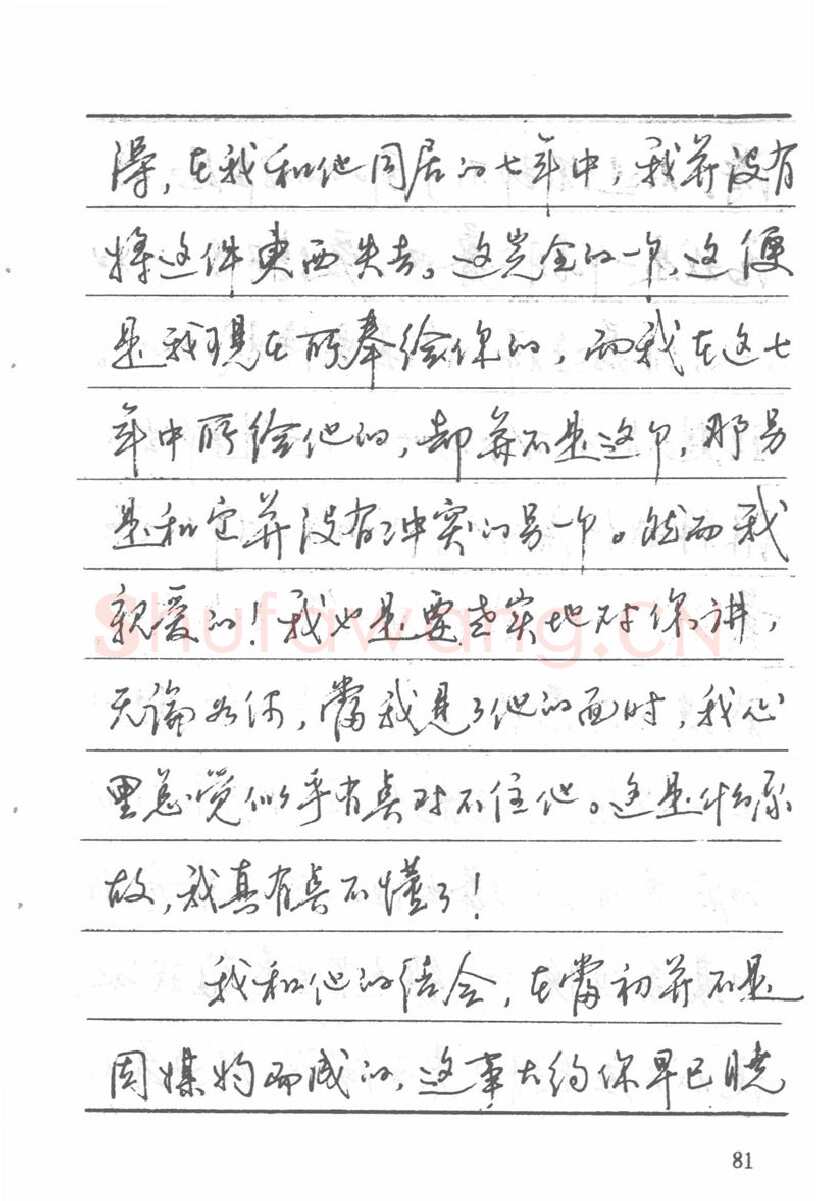 得，在我和他同居的七年中，我并没有
将这件東西失去。这完全的一个，这便
是我現在所奉给你的，而我在这七
年中所给他的，却并不是这个，那另
是和它并没有冲突的另一个。然而我
親爱的！我也是要老实地对你讲，
无論如何，當我見了他的面时，我心
里总觉似乎有臭对不住他。这是什么原
故，我真有臭不懂了！
我和他的结合，在當初并不是
因媒妁而成的，这事大约你早已曉
Shufawang.CN
81